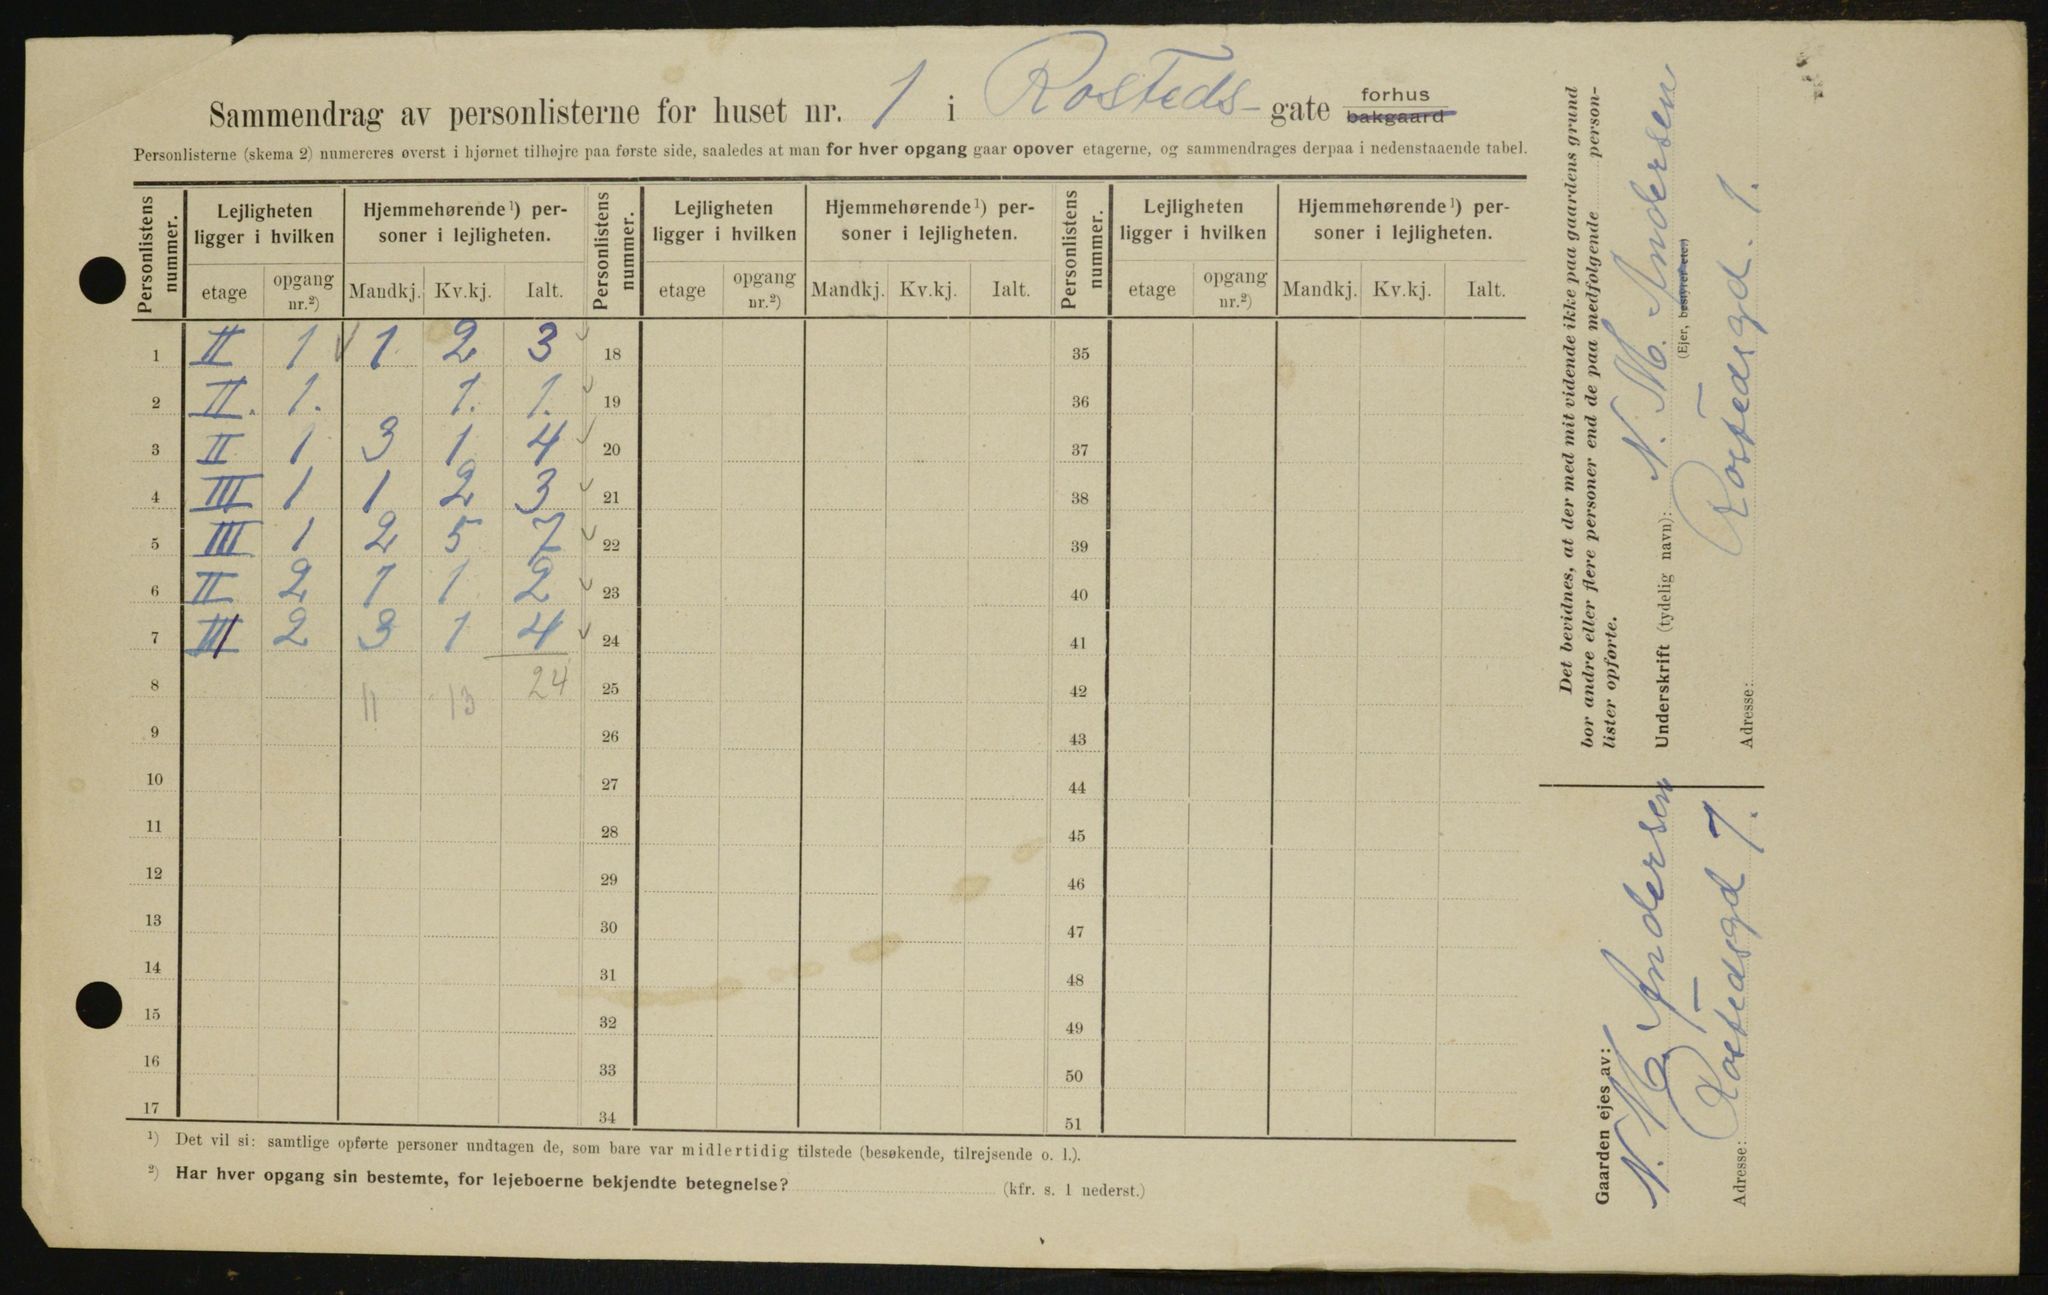 Sammendrag av personlisterne for huset nr. 1 i Rosteds- gate forhus bakgaard
Personlisterne (skema 2) numereres øverst i hjørnet tilhøjre paa første side, saaledes at man for hver opgang gaar opover etagerne, og sammendrages derpaa i nedenstaaende tabel.
Personlistens nummer. Lejligheten ligger i hvilken Hjemmehørende ¹) personer i lejligheten. Personlistens nummer. Lejligheten ligger i hvilken Hjemmehørende ¹) personer i lejligheten. Personlistens nummer. Lejligheten ligger i hvilken Hjemmehørende ¹) personer i lejligheten.
etage opgang nr.²) Mandkj. Kv.kj. Ialt. etage opgang nr.²) Mandkj. Kv.kj. Ialt. etage opgang nr.²) Mandkj. Kv.kj. Ialt.
1 II 1 1 2 3 18 35
2 II. 1. 1. 1. 19 36
3 II 1 3 1 4 20 37
4 III 1 1 2 3 21 38
5 III 1 2 5 7 22 39
6 II 2 1 1 2 23 40
7 III 2 3 1 4 24 41
8 11 13 24 25 42
9 26 43
10 27 44
11 28 45
12 29 46
13 30 47
14 31 48
15 32 49
16 33 50
17 34 51
¹) Det vil si: samtlige opførte personer undtagen de, som bare var midlertidig tilstede (besøkende, tilrejsende o. l.).
²) Har hver opgang sin bestemte, for lejeboerne bekjendte betegnelse? (kfr. s. 1 nederst.)
Det bevidnes, at der med mit vidende ikke paa gaardens grund
bor andre eller flere personer end de paa medfølgende person-
lister opførte.
Underskrift (tydelig navn): N. M. Andersen
(Ejer, bestyrer etc.)
Rostedsgd. 1.
Adresse:
Gaarden ejes av:
N. M. Andersen
Adresse: Rostedsgd 1.